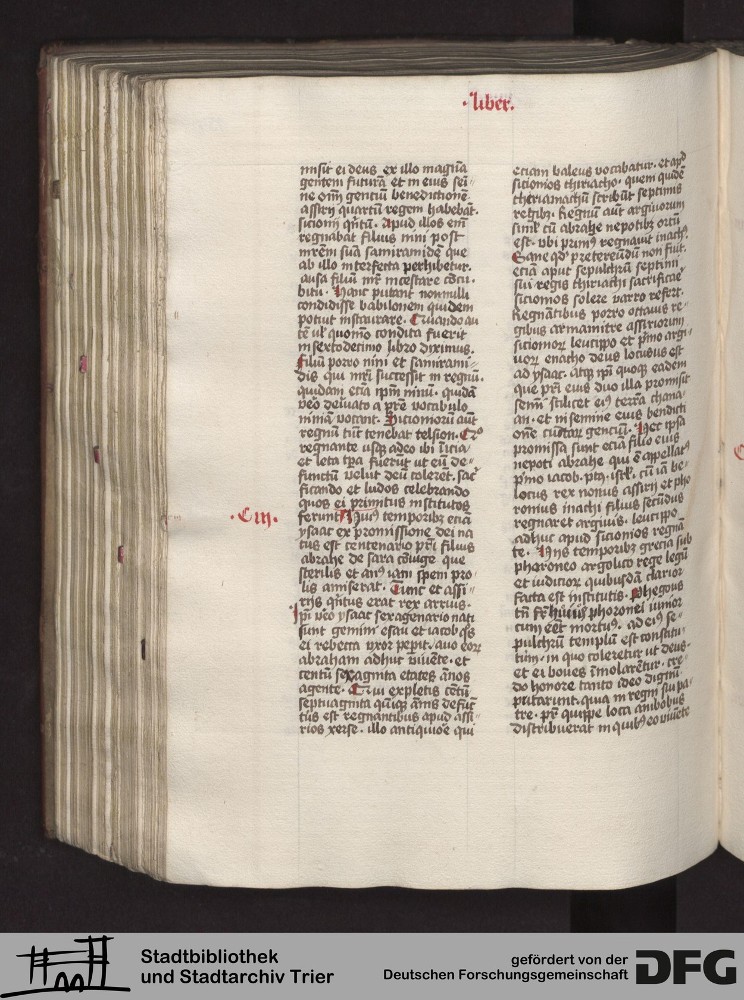 ·liber·
misit ei deus ex illo magnā
gentem futurā et in eius sei⸗
ne om̄ gentiū benedictionē
assirij quartū regem habebāt.
sicionij qn̄tū. Apud illos em̄
regnabat filius nini post
mrēm suā samiramidē que
ab illo interfecta perhibetur.
ausa filiū
bitu. Hanc putant nonnulli
condidisse babilonem quidem
potuit instaurare. Quando au
tē ul̓ quomō condita fuerit
in sextodecimo libro diximus.
Filiū porro nini et samirami⸗
dis qui mr̄i successit in regnū.
quidam etiā ipm̄ ninū. quidā
vēo deiuato a pr̄e vocabulo
niniā vocant. Sicioniorū aūt
regnū tūc tenebat telsion. Quo
regnante usqꝫ adeo ibi
et leta tpa fuerūt ut eū de⸗
functū velut deū coleret. sac̓
ficando et ludos celebrando
quos ei primitus institutos
·C iij· ferunt. Huiꝰ temporibꝫ etiā
ysaac ex promissione dei na
tus est centenario pr̄i filius
abrahe de sara cōiuge que
sterilis et anꝰ iam spem pro⸗
lis amiserat. Tunc et assi⸗
rijs qn̄tus erat rex arrius.
Ipī vēo ysaac sexagenario nati
sunt gemini esau et iacob qͦs
ei rebecca uxor pepit. auo eorꝫ
abraham adhuc viuēte. et
centū sexaginta etatis ānos
agente. Qui expletis cētū
septuaginta quīqꝫ ānis defūc
tus est regnantibus apud assi⸗
rios xerse. illo antiquioē qui
eciam baleus vocabatur. et apd̓
sicionios thiriacho. quem quidē
thuriamachū scribūt septimis
regibꝫ. Regnū aūt argiuorum
simĺ cū abrahe nepotibꝫ ortū
est. vbi primꝰ regnauit inachꝰ.
Sane qd̓ pretereūdū non fuit.
eciā aput sepulchrū septimi
sui regis thiriachi sacrificare
sicionios solere varro refert.
Regnātibus porro octauis re⸗
gibus armamitre assiriorum
sicionioꝝ leucippo et pͥmo argi⸗
uoꝝ enacho deus locutus est
ad ysaac. atqꝫ ipī quoqꝫ eadem
que pr̄i eius duo illa promisit
semī scilicet eiꝰ terrā chana⸗
an. et in semine eius benedicti
onē cūctaꝝ gentiū. Hec ipsa
promissa sunt eciā filio eius
nepoti abrahe qui ē appellatꝰ
pͥmo iacob. pꝰ isrl̓. cū iā be⸗
locus rex nonus assirij et pho
ronius inachi filius secūdus
regnaret argiuis. leucippo
adhuc apud sicionios regnā
te. Hijs temporibꝫ grecia sub
phoroneo argolico rege legū
et iudicioꝝ quibusdā clarior
facta est institutis. Phegous
tn̄ fr̄ huiꝰ phoronei iunior
cum eēt mortuꝰ. ad eiꝰ se⸗
pulchrū templū est constitu
tum. in quo coleretur ut deus.
et ei boues īmolarētur. cre⸗
do honore tanto ideo dignū
putarunt. quia in regni sui pa⸗
te. pr̄ quippe loca ambobus
distribuerat in quibꝰ eo viuēte
Stadtbibliothek
und Stadtarchiv Trier
gefördert von der
Deutschen Forschungsgemeinschaft
DFG